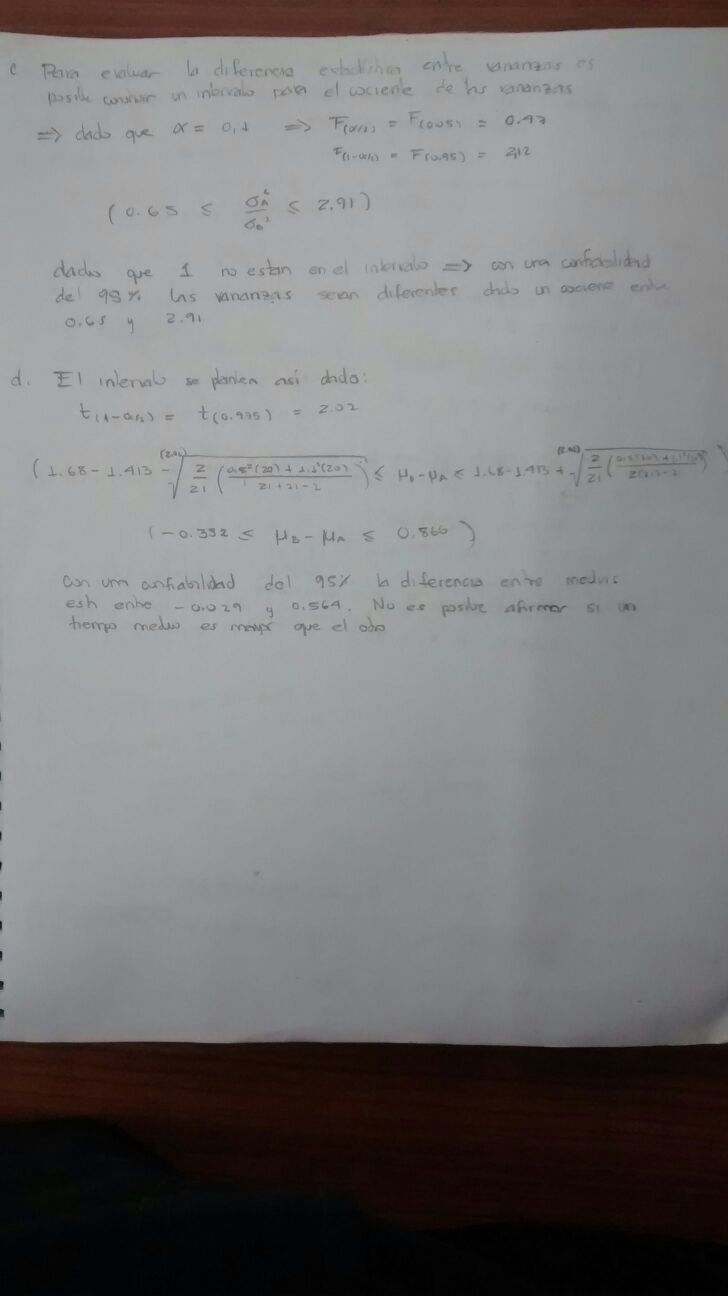 c Para evaluar la diferencia estadistica entre varianzas es
posible construir un intervalo para el cociente de las varianzas
=> dado que α = 0,1 => F(α/2) = F(0.05) = 0.47
F(1-α/2) = F(0.95) = 2,12
(0.65 ≤ σA²/σB² ≤ 2.91)
dado que 1 no estan en el intervalo => con una confiabilidad
del 95% las varianzas serian diferentes dado un cociente entre
0.65 y 2.91
d. El intervalo se plantea así dado:
t(1-α/2) = t(0.975) = 2.02
(1.68 - 1.413 - (2.02) √(2/21 ((0.8²(20) + 1.1²(20))/(21+21-2))) ≤ μB - μA ≤ 1.68 - 1.413 + √(2/21
(-0.332 ≤ μB - μA ≤ 0.866)
Con una confiabilidad del 95% la diferencia entre medias
esta entre -0.029 y 0.564. No es posible afirmar si un
tiempo medio es mayor que el otro